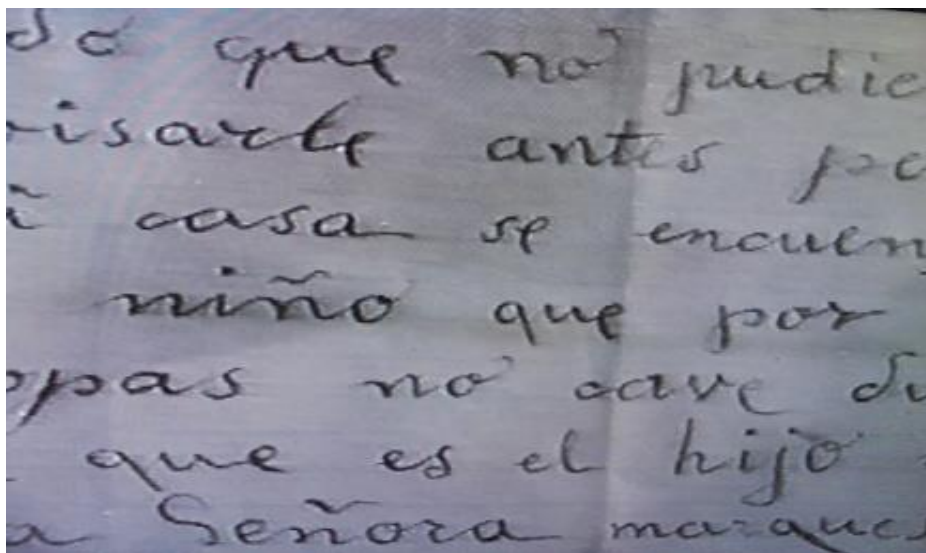 do que no pudie
isarte antes po
i casa se encuen
niño que por
opas no cave du
que es el hijo
a Señora marques